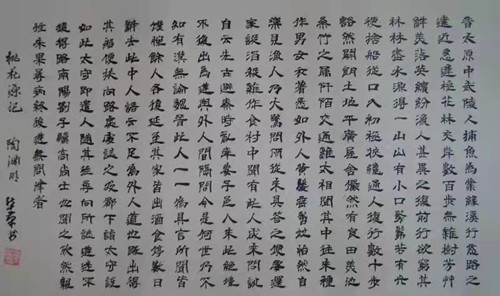 晉太原中武陵人捕魚為業緣溪行忘路之
遠近忽逢桃花林夾岸數百步無雜樹芳草
鮮美落英繽紛漁人甚異之復前行欲窮其
林林盡水源得一山山有小口髣髴若有光
便捨船從口入初極狹纔通人復行數十步
豁然開朗土地平廣屋舍儼然有良田美池
桑竹之屬阡陌交通雞犬相聞其中往來種
作男女衣著悉如外人黃髮垂髫並怡然自
樂見漁人乃大驚問所從來具答之便要還
家設酒殺雞作食村中聞有此人咸來問訊
自云先世避秦時亂率妻子邑人來此絕境
不復出焉遂與外人間隔問今是何世乃不
知有漢無論魏晉此人一一為具言所聞皆
嘆惋餘人各復延至其家皆出酒食停數日
辭去此中人語云不足為外人道也既出得
其船便扶向路處處誌之及郡下詣太守說
如此太守即遣人隨其往尋向所誌遂迷不
復得路南陽劉子驥高尚士也聞之欣然規
往未果尋病終後遂無問津者
桃花源記 陶淵明